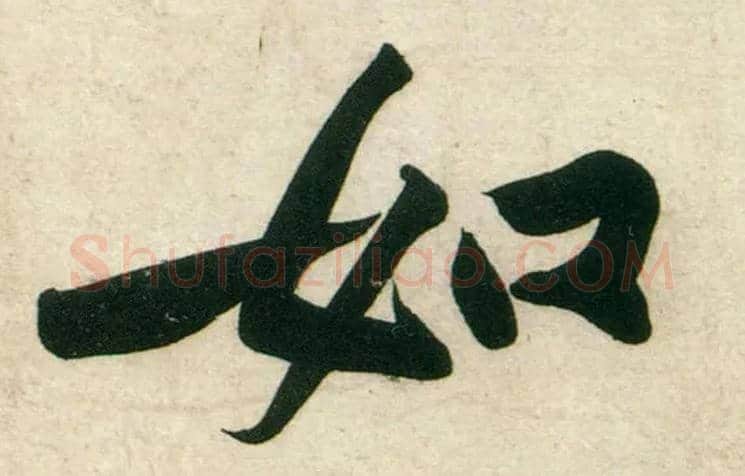 如
Shufaziliao.COM